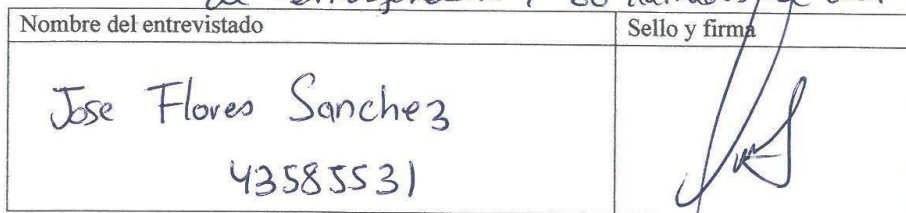 de
Nombre del entrevistado
Sello y firma
Jose Flores Sanchez
43585531